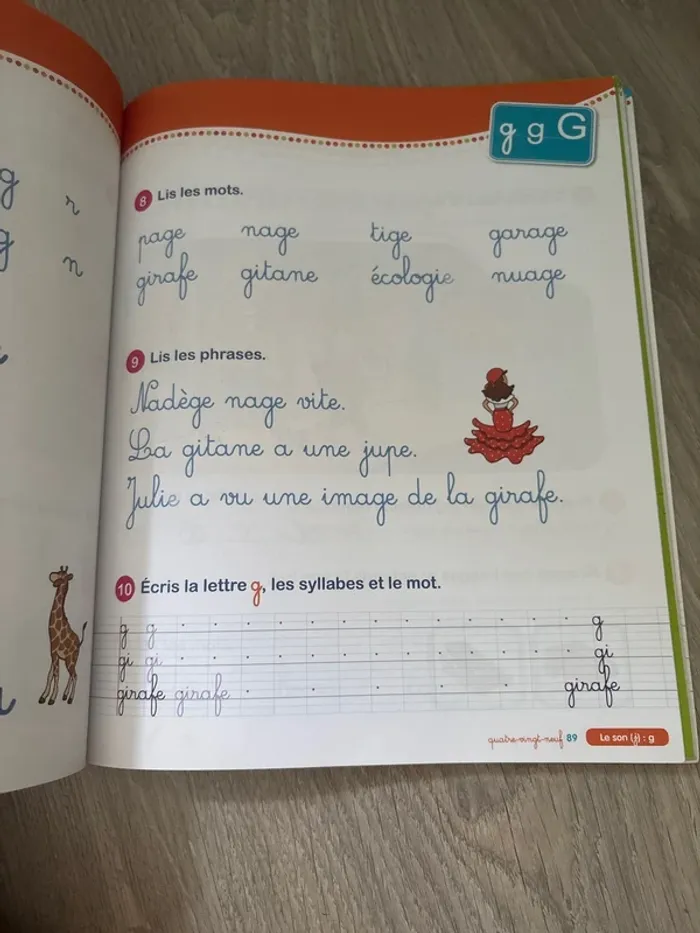 g
g
n
n
g g G
8 Lis les mots.
page nage tige garage
girafe gitane écologie nuage
9 Lis les phrases.
Nadège nage vite.
La gitane a une jupe.
Julie a vu une image de la girafe.
10 Écris la lettre g, les syllabes et le mot.
g g g
gi gi gi
girafe girafe girafe
quatre-vingt-neuf 89 Le son (j) : g